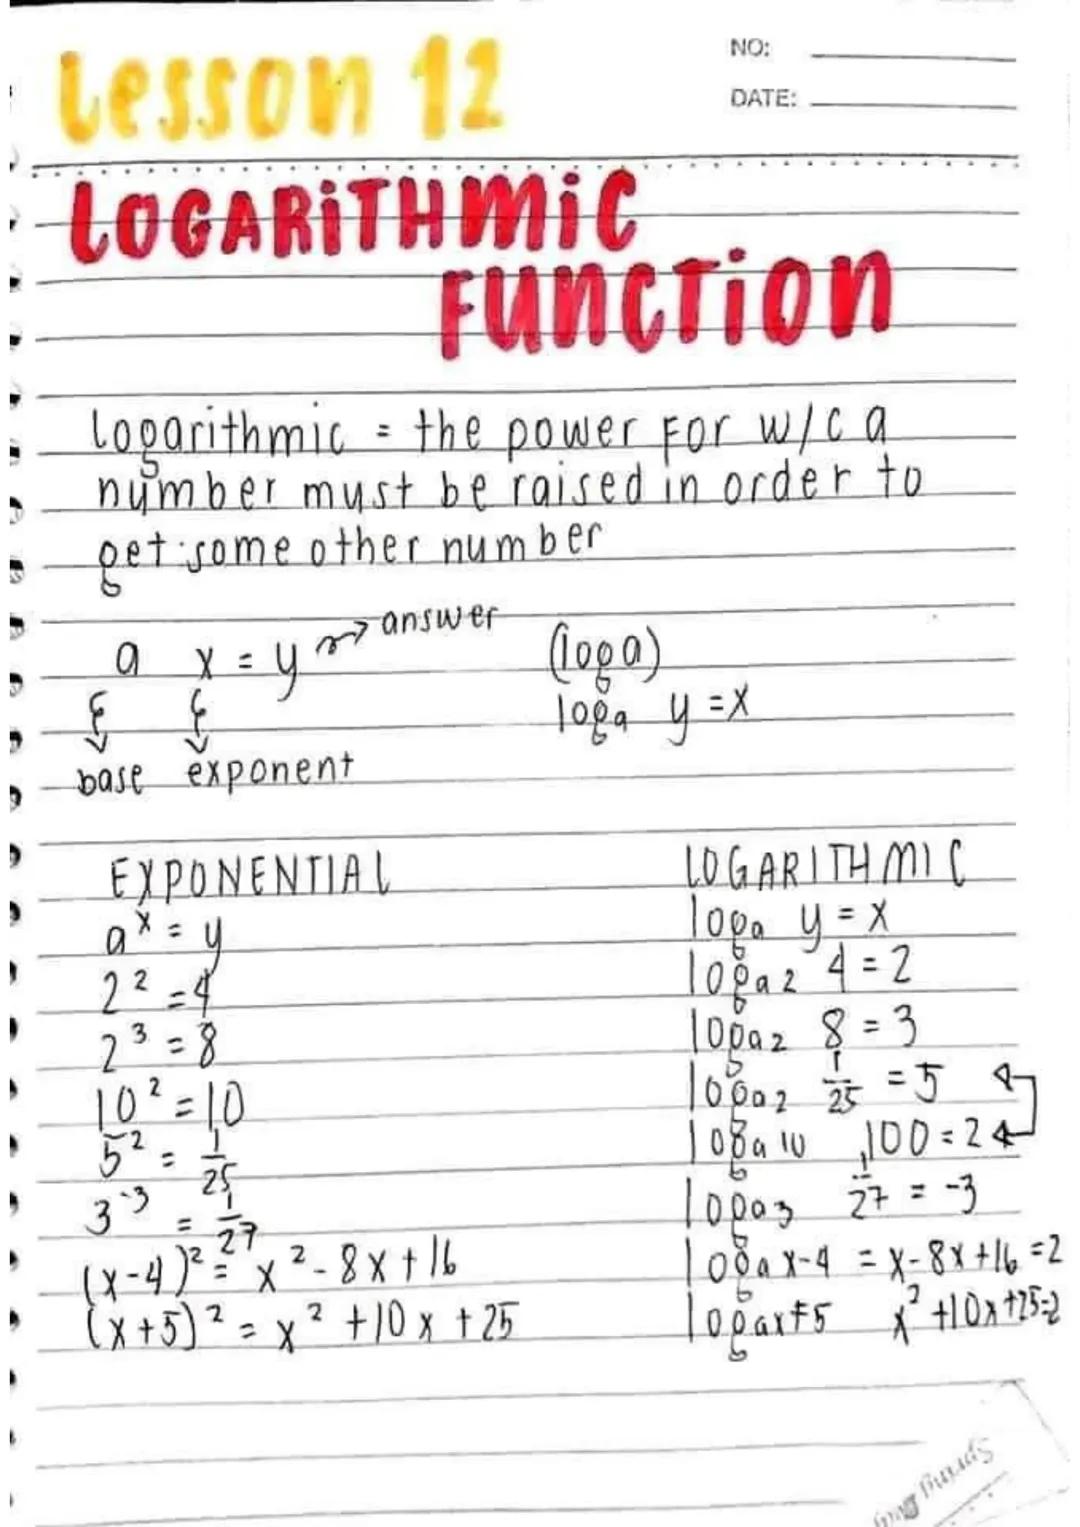 Lesson 12
NO:
DATE:
LOGARiTHMiC
FUNCTiON
logarithmic = the power For w/c a
number must be raised in order to
get some other number
a x = y answer
(log a)
logₐ y = x
base exponent
EXPONENTIAL LOGARITHMIC
aˣ = y logₐ y = x
2² = 4 logₐ₂ 4 = 2
2³ = 8 logₐ₂ 8 = 3
10² = 10 logₐ₂ 1/25 = 5
5² = 1/25 logₐ 10 100 = 2
3⁻³ = 1/27 logₐ₃ 1/27 = -3
(x-4)² = x² - 8x + 16 logₐ x-4 = x - 8x + 16 = 2
(x+5)² = x² + 10x + 25 logₐ x+5 x² + 10x + 25 = 2
Spring